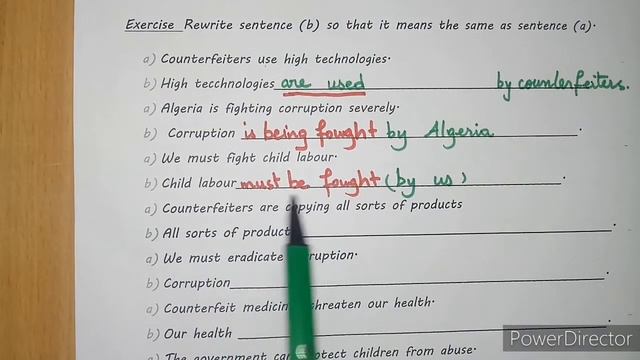 Exercise Rewrite sentence (b) so that it means the same as sentence (a).
a) Counterfeiters use high technologies.
b) High tecchnologies are used by counterfeiters.
a) Algeria is fighting corruption severely.
b) Corruption is being fought by Algeria.
a) We must fight child labour.
b) Child labour must be fought (by us).
a) Counterfeiters are copying all sorts of products
b) All sorts of product
a) We must eradicate
b) Corruption
a) Counterfeit medicin threaten our health.
b) Our health
a) The government can protect children from abuse.
PowerDirector